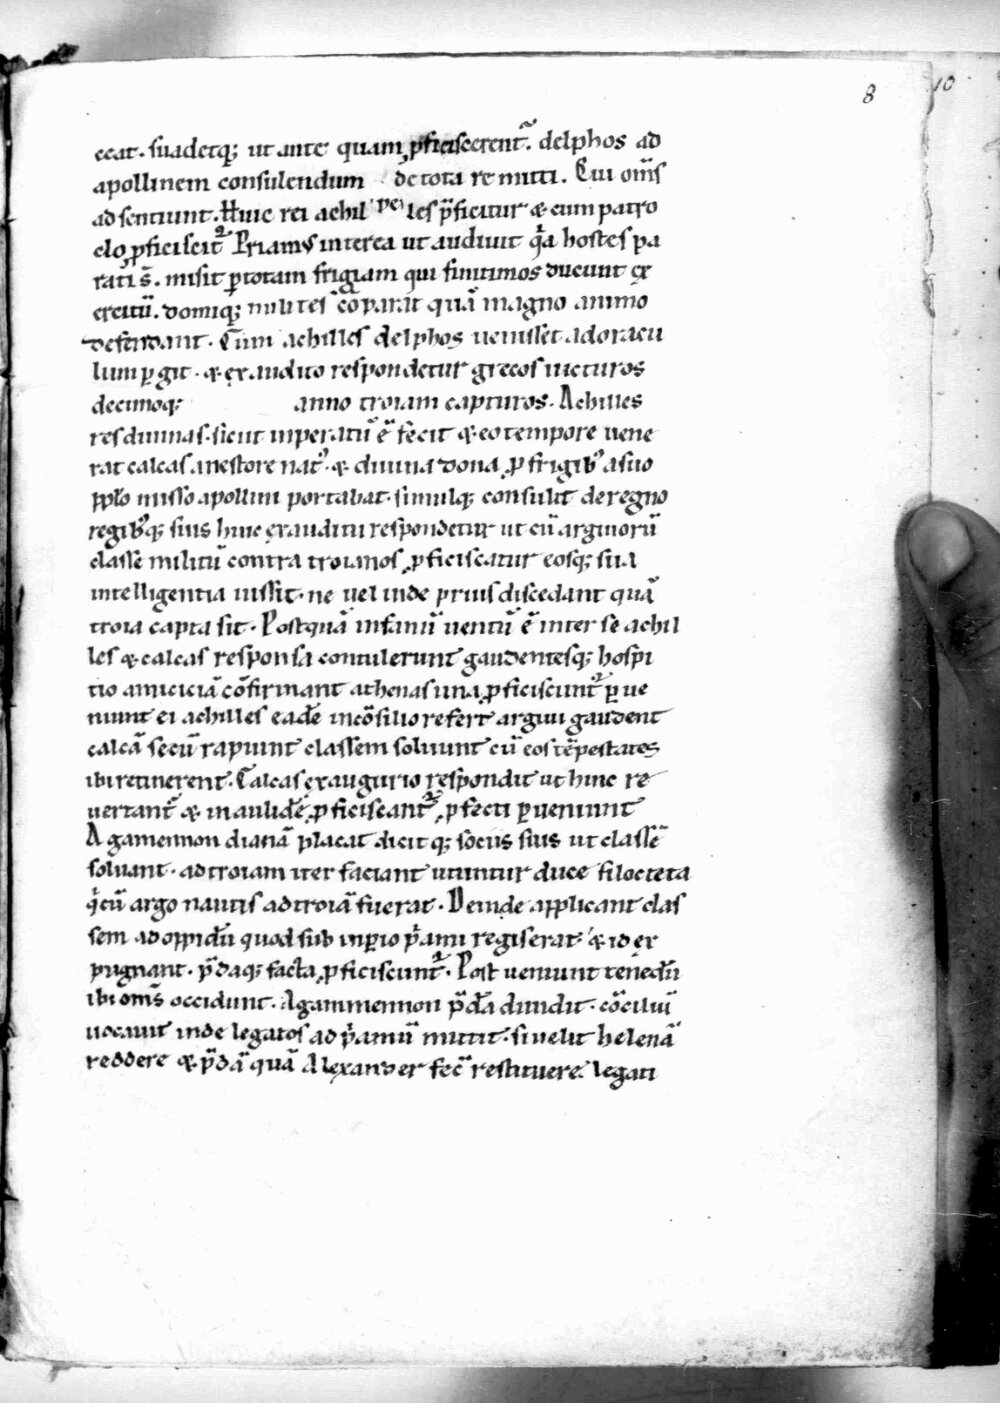 8
10
ceat. suadetq; ut ante quam ꝓficiscerent᷑. delphos ad
apollinem consulendum de tota re mitti. Cui om̅s
adsentiunt. Huic rei achil les p̅ficitur & cum patro
clo ꝓficiscit᷑ Priamus interea ut audiuit q̅a hostes pa
rati s̅. misit ꝑ totam frigiam qui finitimos ducunt ex
ercitū. domiq; milites cōparat quā magno animo
defendant. Cum achilles delphos uenisset ad oracu
lum ꝑgit. & ex audito respondetur grecos uicturos
decimoq; anno troiam capturos. Achilles
res diuinas. sicut inperatū ē fecit & eo tempore uene
rat calcas a nestore nat᷒. & diuina dona ꝓ frigib᷒ a suo
pplo misso apollini portabat. simulq; consulit de regno
regib᷒q; suis huic ex auditu respondetur ut cū arguiorū
classe militū contra troianos ꝓficiscatur eosq; sua
intelligentia iussit. ne uel inde prius discedant quā
troia capta sit. Postquā in fanū uentū ē inter se achil
les & calcas responsa contulerunt gaudentesq; hospi
tio amiciciā cōfirmant athenas una ꝓficiscunt᷑ ꝑue
niunt ei achilles eadē in cōsilio refert arguu gaudent
calcā secū rapiunt classem soluunt cū eos tēpestates
ibi retinerent. Calcas ex augurio respondit ut hinc re
uertant᷑ & in aulidē ꝓficiscant᷑ ꝓfecti ꝑueniunt
Agamemnon dianā placat dicit q; sociis suis ut classē
soluant. ad troiam iter faciant utuntur duce filocteta
q̍ cū argo nautis ad troiā fuerat. Deinde applicant clas
sem ad oppidū quod sub inperio p̍ami regis erat & id ex
pugnant. p̅daq; facta ꝓficiscunt᷑. Post ueniunt tenedū
ibi om̅s occidunt. Agammemnon p̅dā diuidit. cōciliū
uocauit inde legatos ad p̍amū mittit. si uelit helenā
reddere & p̅dā quā Alexander fec̅ restituere. legati